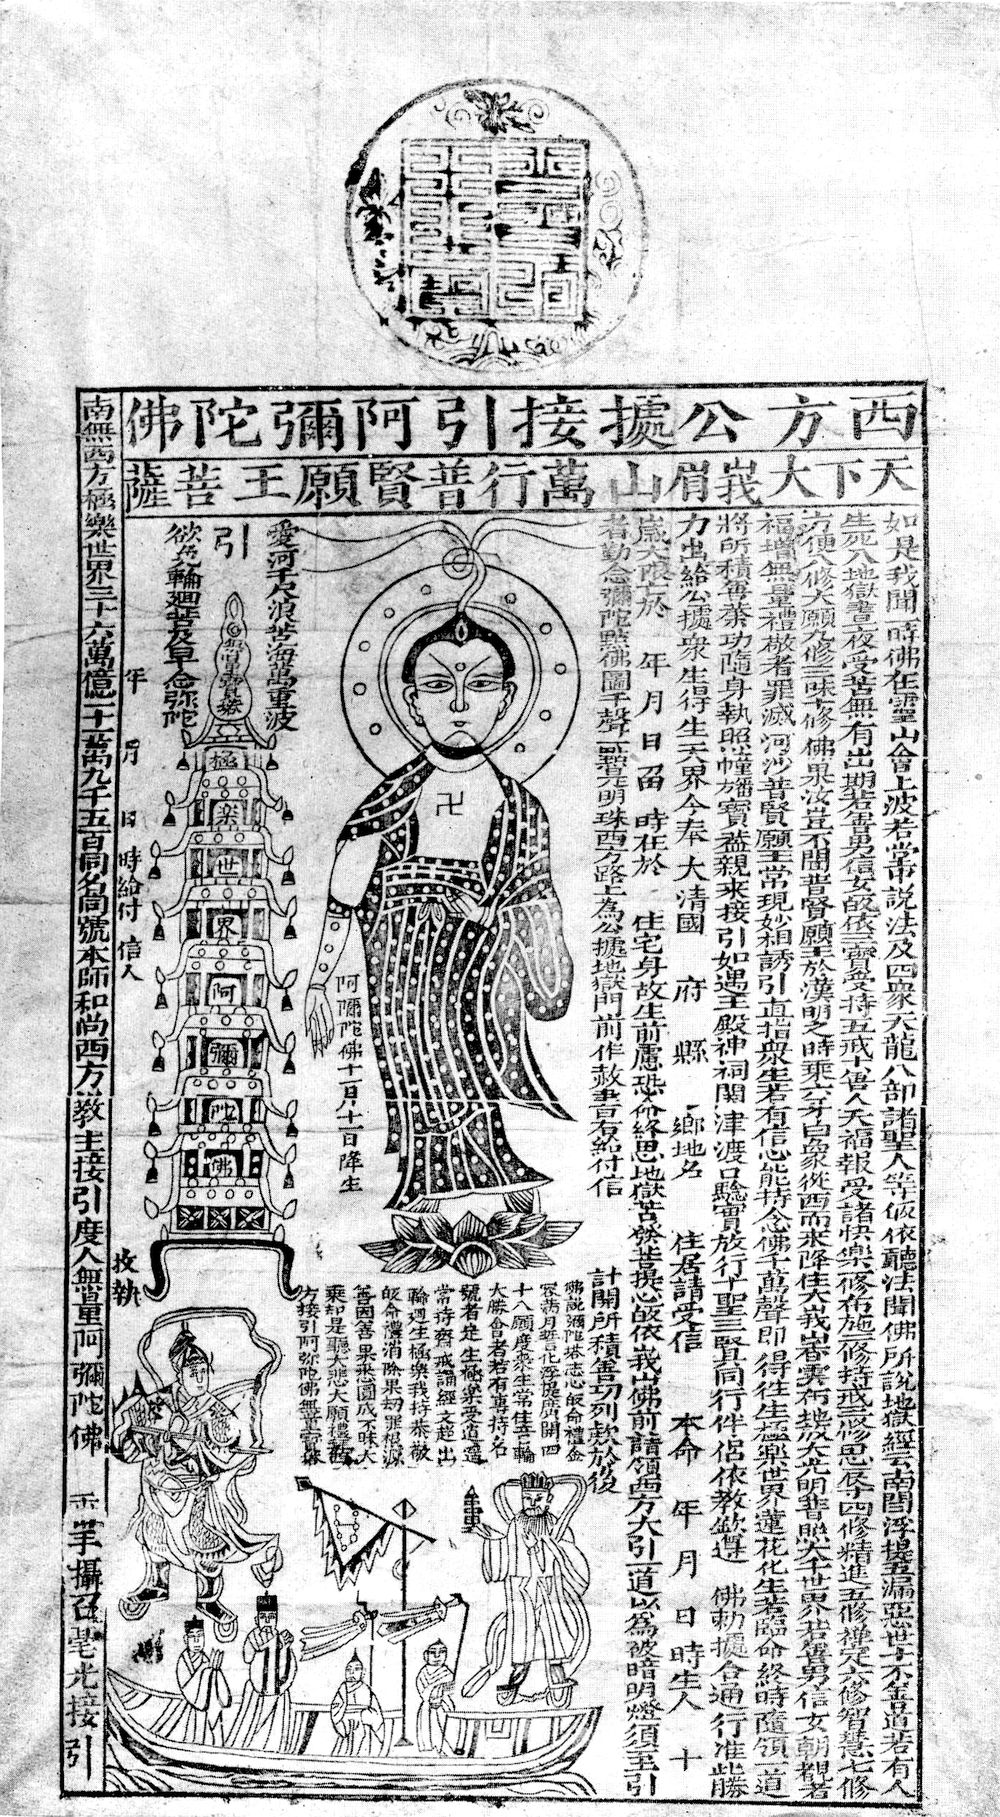 西方公據接引阿彌陀佛
天下大峩眉山萬行普賢願王菩薩
如是我聞一時佛在靈山會上波若堂中說法及四眾天龍八部諸聖人等皈依聽法聞佛所說地獄經云南閻浮提五漏惡世十不善道若有人
生死八地獄晝夜受苦無有出期若善男信女皈依三寶受持五戒十善人天福報受諸快樂一修布施二修持戒三修忍辱四修精進五修禪定六修智慧七修
方便八修大願九修三昧十修佛果汝豈不聞普賢願王於漢明之時乘六牙白象從西而來降住大峩眉雲布地放大光明普照大千世界若善男信女朝觀者
福增無量禮敬者罪滅河沙普賢願王常現妙相誘引直指眾生若有信心能持念佛千萬聲即得往生極樂世界蓮花化生若臨命終時隨領一道
將所積齋茶功隨身執照幢旛寶蓋親來接引如遇王殿神祠關津渡口驗實放行十聖三賢同行伴侶依教欽遵 佛勅據合通行准此勝
力出給公據眾生得生天界今奉大清國 府 縣 鄉地名 住居請受信 本命 年 月 日 時生人 十
歲大限於 年 月 日 時在於 住宅身故生前慮恐命終思地獄苦發菩提心皈依峩山佛前請領西方大引一道以為破暗明燈須至引
者勤念彌陀點佛圖千聲一點元明珠西方路上為公據地獄門前作赦書右給付信
計開所積善功列款於後
愛河千尺浪苦海萬重波
引
欲免輪迴苦及早念弥陀
卍
阿彌陀佛十一月十七日降生
極
樂
世
界
阿
彌
陀
佛
年 月 日 時給付 信人
收執
佛說彌陀塔志心皈命禮金
容滿月菩化海提廣開四
十八願度眾生常住喜輪
大勝會者若有專持名
號者是生極樂受逍遥
常持齋戒誦經文超出
輪迴生極樂我持恭敬
皈命禮消除累劫罪根源
善因善果悉圓成不昧大
乘知是聽大悲大願禮
方接引阿弥陀佛無量寶塔
南無西方極樂世界三十六萬億一十一萬九千五百同名同號本師和尚西方教主接引度人無量阿彌陀佛 垂手攝召毫光接引